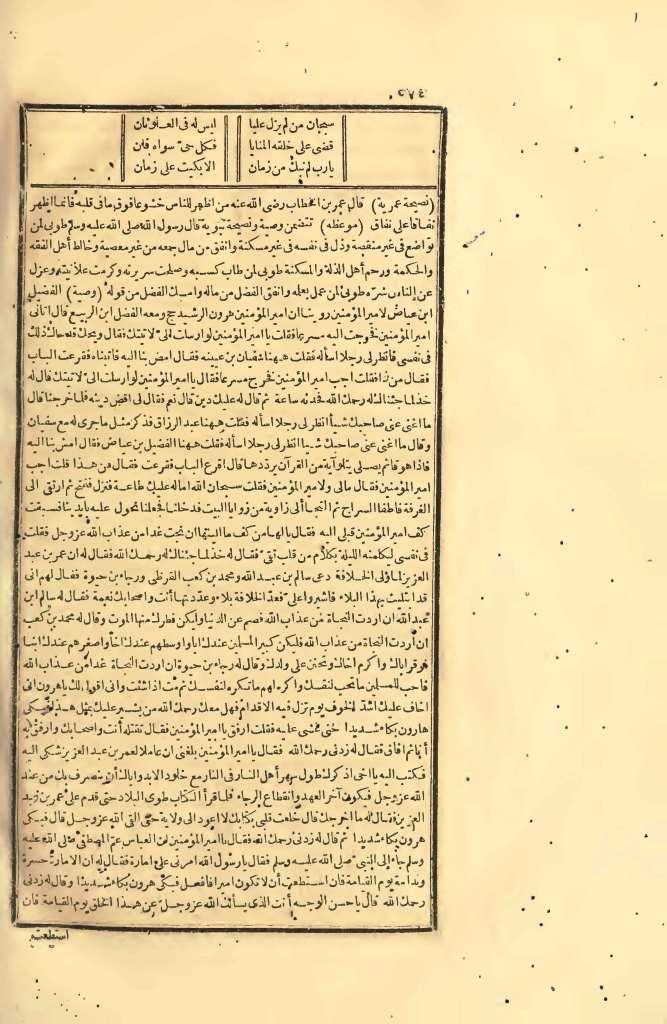 ٤٨٥
سبحان من لم يزل عليا ليس له فى العلو ثان
قضى على خلقه المنايا فكل حىّ سواه فان
يارب لم نبك من زمان الا بكيت على زمان
(نصيحة عمرية) قال عمر بن الخطاب رضى الله عنه من اظهر للناس خشوعا فوق ما فى قلبه فانما اظهر
نفاقا على نفاق (موعظه) تتضمن وصية ونصيحة نبوية قال رسول الله صلى الله عليه وسلم طوبى لمن
تواضع فى غير منقصة وذل فى نفسه فى غير مسكنة وانفق من مال جمعه من غير معصية وخالط أهل الفقه
والحكمة ورحم أهل الذلة والمسكنة طوبى لمن طاب كسبه وصلحت سريرته وكرمت علانيته وعزل
عن الناس شرّه طوبى لمن عمل بعلمه وانفق الفضل من ماله وامسك الفضل من قوله (وصية) الفضيل
ابن عياض لامير المؤمنين روينا ان امير المؤمنين هرون الرشيد حج ومعه الفضل ابن الربيع قال اتانى
امير المؤمنين فخرجت اليه مسرعا فقلت يا امير المؤمنين لو ارسلت الىّ لاتيتك فقال ويحك قد حاك ذلك
فى نفسى فانظر لى رجلا اسأله فقلت ههنا سفيان بن عيينه فقال امض بنا اليه فاتيناه فقرعت الباب
فقال من ذا فقلت اجب امير المؤمنين فخرج مسرعا فقال يا امير المؤمنين لو ارسلت الىّ لاتيتك قال له
خذ لما جئناك له رحمك الله فحدثه ساعة ثم قال له عليك دين قال نعم فقال لى اقض دينه فلما خرجنا قال
ما اغنى عنى صاحبك شيأ انظر لى رجلا اسأله فقلت ههنا عبد الرزاق فذكر مثل ما جرى له مع سفيان
وقال ما اغنى عنى صاحبك شيأ انظر لى رجلا اسأله فقلت ههنا الفضيل بن عياض فقال امش بنا اليه
فاذا هو قائم يصلى يتلو آية من القرآن يرددها قال اقرع الباب فقرعت فقال من هذا قلت اجب
امير المؤمنين فقال مالى ولامير المؤمنين فقلت سبحان الله اما له عليك طاعة فنزل ففتح ثم ارتقى الى
الغرفة فاطفأ السراج ثم التجأ الى زاوية من زوايا البيت فدخلنا فجعلنا نجول عليه بايدينا فسبقت
كف امير المؤمنين قبلى اليه فقال يا لها من كف ما الينها ان نجت غدا من عذاب الله عز وجل فقلت
فى نفسى ليكلمنه الليلة بكلام من قلب تقىّ فقال له خذ لما جئناك له رحمك الله فقال له ان عمر بن عبد
العزيز لما ولى الخلافة دعى سالم بن عبد الله ومحمد بن كعب القرظى ورجاء بن حيوة فقال لهم انى
قد ابتليت بهذا البلاء فاشيروا علىّ فعدّ الخلافة بلاء وعددتها أنت واصحابك نعمة فقال له سالم ابن
عبد الله ان اردت النجاة من عذاب الله فصم عن الدنيا وليكن فطرك منها الموت وقال له محمد بن كعب
ان اردت النجاة من عذاب الله فليكن كبير المسلمين عندك ابا واوسطهم عندك اخا واصغرهم عندك ابنا
فوقر اباك واكرم اخاك وتحنن على ولدك وقال له رجاء بن حيوة ان اردت النجاة غدا من عذاب الله
فاحب للمسلمين ما تحب لنفسك واكره لهم ما تكره لنفسك ثم مت اذا شئت وانى اقول لك يا هرون انى
اخاف عليك اشدّ الخوف يوم تزل فيه الاقدام فهل معك رحمك الله من يشير عليك بمثل هذا فبكى
هارون بكاء شديدا حتى غشى عليه فقلت ارفق يا امير المؤمنين فقال تقتله أنت واصحابك وارفق به
أنا ثم افاق فقال له زدنى رحمك الله فقال يا امير المؤمنين بلغنى ان عاملا لعمر بن عبد العزيز شكى اليه
فكتب اليه يا اخى اذكرك طول سهر أهل النار فى النار مع خلود الابد واياك أن ينصرف بك من عند
الله عز وجل فيكون آخر العهد وانقطاع الرجاء فلما قرأ الكتاب طوى البلاد حتى قدم على عمر بن عبد
العزيز فقال له ما اخرجك قال خلعت قلبى بكتابك لا اعود الى ولاية حتى التى الله عز وجل قال فبكى
هرون بكاء شديدا ثم قال له زدنى رحمك الله فقال يا امير المؤمنين ان العباس عمّ المصطفى صلى الله عليه
وسلم جاء الى النبىّ صلى الله عليه وسلم فقال يا رسول الله امرنى على امارة فقال له ان الامارة حسرة
وندامة يوم القيامة فان استطعت أن لا تكون اميرا فافعل فبكى هرون بكاء شديدا وقال له زدنى
رحمك الله قال يا حسن الوجه أنت الذى يسألك الله عز وجل عن هذا الخلق يوم القيامة فان
استطعت